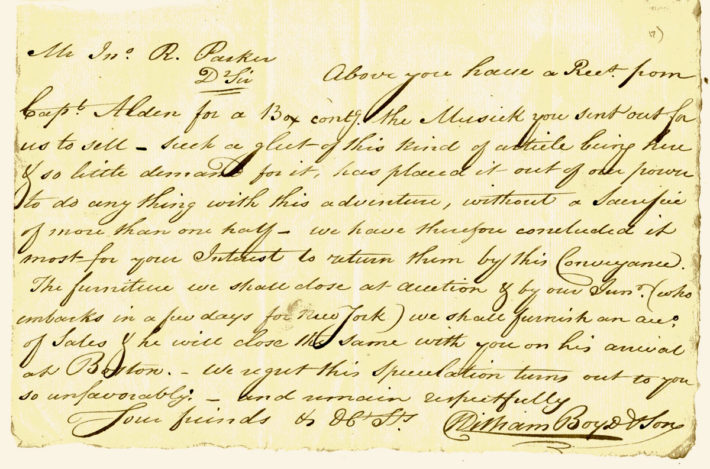 Mr Jno. R. Parker
Dr Sir Above you have a Rect. from
Capt. Alden for a Box contg. the Musick you sent out for
us to sell – such a glut of this kind of article being here
& so little demand for it, has placed it out of our power
to do any thing with this adventure, without a Sacrifice
of more than one half – we have therefore concluded it
most for your Interest to return them by this Conveyance.
The furniture we shall close at auction & by our Junr. (who
embarks in a few days for New York) we shall furnish an acco.
of Sales & he will close the same with you on his arrival
at Boston. – We regret this speculation turns out to you
so unfavorably. – and remain respectfully
Your friends & Ob. Sts
William Boyd & Son